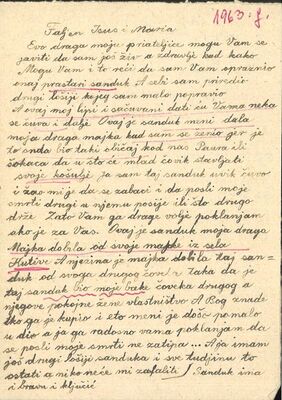 1963. g.
Faljen Isus i Maria
Evo draga moje prijateljice mogu Vam se
javiti da sam još živ a zdravlje kad kako
Mogu Vam i to reći da sam Vam opraznio
onaj prastari sanduk A sebi sam priredio
drugi lošiji kojeg sam malo popravio
A ovaj moj lipi i sačuvani dati ću Vama neka
se čuva i dalje Ovaj je sanduk meni dala
moja draga majka kad sam se ženio jer je
to onda bio taki običaj kod nas Paura ili
šokaca da u što će mlad čovik stavljati
svoje košulje Ja sam taj sanduk uvik čuvo
i žao mi je da se zabaci i da posli moje
smrti drugi a njemu posije ili što drugo
drže Zato Vam ga drage volje poklanjam
ako je za Vas. Ovaj je sanduk moja draga
Majka dobila od svoje majke iz sela
Kutive A njezina je majka dobila taj san-
duk od svoga drugog čoveka Taka da je
taj sanduk bio moje bake čoveka drugog a
njegove pokojne žene vlastničtvo A Bog znade
ko ga je kupio i eto meni je došo pomalo
u dio a ja ga radosno vama poklanjam da
se posli moje smrti ne zatipa... Aja imam
još drugi lošiji sanduka i sve tudjinu to
ostati a niko neće mi zafaliti / Sanduk ima
i bravu i ključić